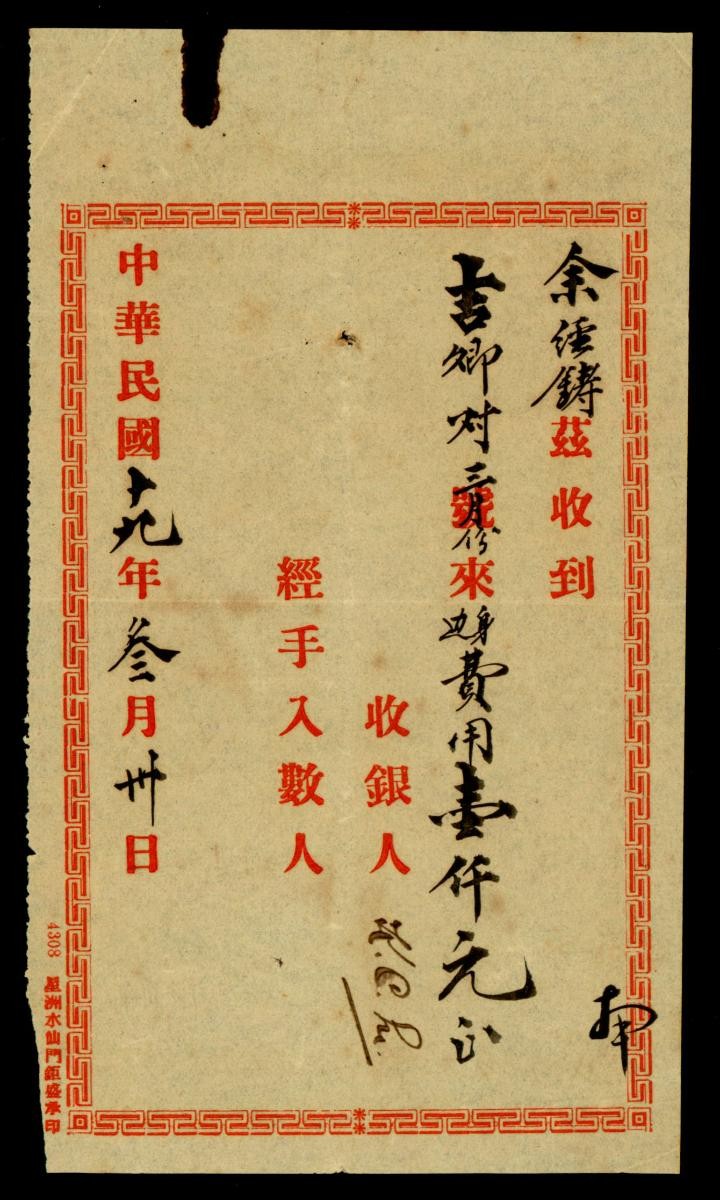 余經鑄茲收到
吉卿对三月份號來边身費用壹仟元正
收銀人
經手入數人
中華民國十九年叁月卅日
4308 星洲水仙門鉅盛承印